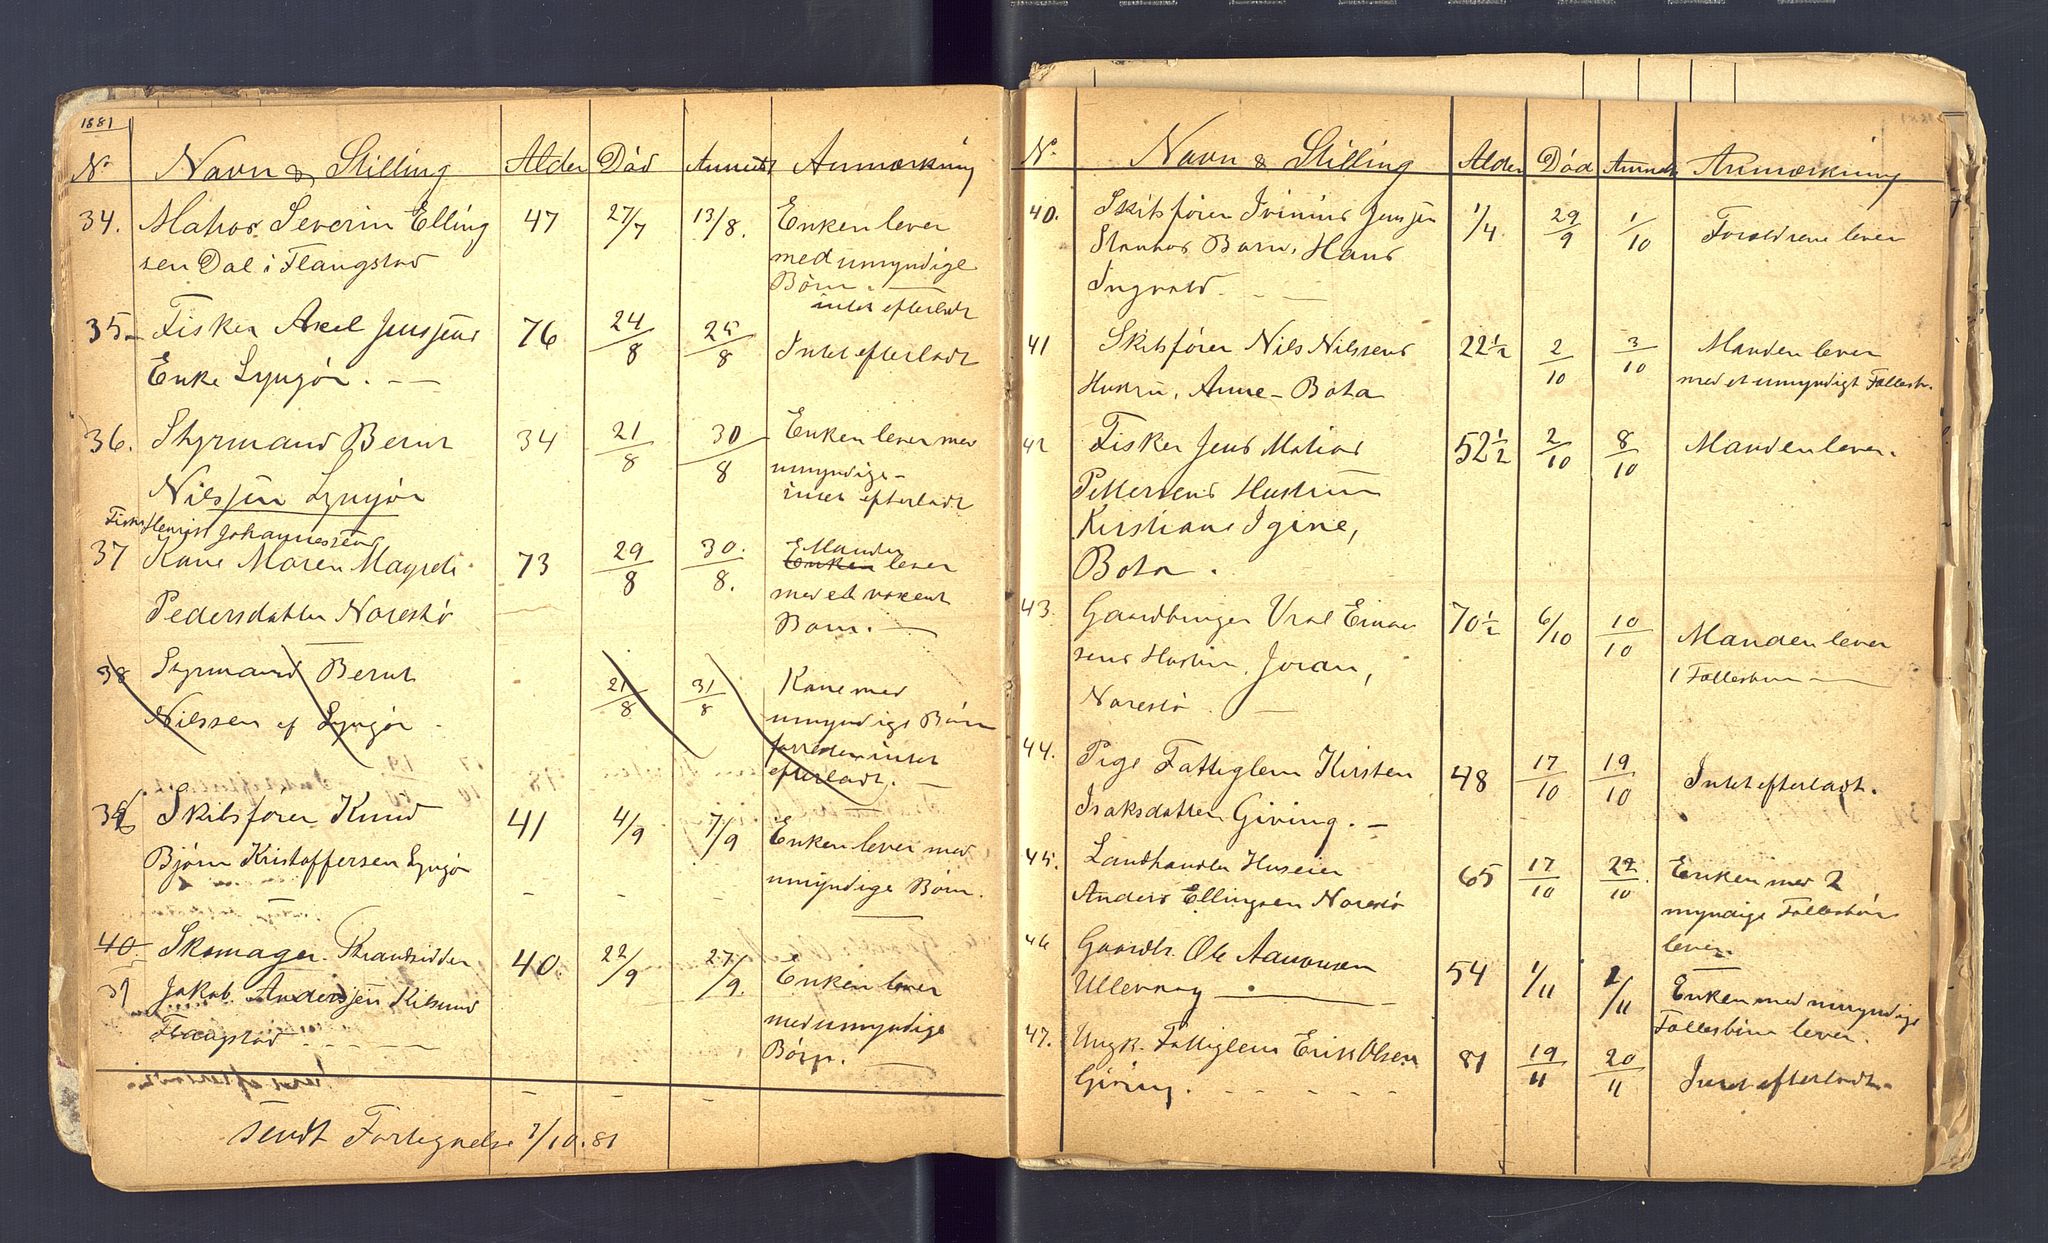 1881
No Navn & Stilling Alder Död Anmeldt Anmærkning
34. Matros Severin Elling 47 27/7 13/8. Enken lever
sen Dal i Flangstad med umyndige
Børn. —
intet efterladt
35 Fisker Axel Jenssens 76 24/8 25/8 Intet efterladt
Enke Lyngør. —
36. Styrmand Bernt 34 21/8 30/8 Enken lever med
umyndige —
Nilssen Lyngør intet efterladt
Fisker Henrik Johannessens
37 Kone Maren Magrete 73 29/8 30/8. Manden
Enken lever
Pedersdatter Narestø med et voxent
Barn. —
38 Styrmand Bernt 21/8 31/8 Kone med
Nilssen af Lyngør umyndige Børn
forresten intet
efterladt.
39 Skibsfører Knud 41 4/9 7/9 Enken lever med
Bjørn Kristoffersen Lyngør
umyndige Børn.
40 Skomager Strandsidder 40. 22/9 27/9. Enken lever
39 Jakob Anderssen Kilsund
Flangstad med umyndige
Børn. —
sendt Fortegnelse 1/10.81
No. Navn & Stilling Alder Död Anmeldt Anmærkning
40. Skibsfører Jenssen 1/4 29/9 1/10 Forældrene lever
Barn, Hans
Ingvald. —
41 Skibsfører Nils Nilssens 22½ 2/10 3/10 Manden lever
Hustru, Anne - Bota med et umyndigt Fællesb.
42 Fisker Jens Matias 52½ 2/10 8/10 Manden lever.
Pettersens Hustru
Kirstiane Igine,
Bota.
43. Gaardbruger Einar 70½ 6/10 10/10 Manden lever
sens Hustru, Joran, 1 Fællesbarn —
Narestø. —
44. Pige Fattiglem Kirsten 48 17/10 19/10 Intet efterladt.
Isaksdatter Giving. —
45. Landhandler Huseier 65 17/10 22/10 Enken med 2
Anders Ellingsen Narestø myndige Fællesbørn
lever.
46 Gaardbr. Ole Aanonsen 54 1/11 2/11 Enken med umyndige
Ullevaag — Fællesbørn lever.
47. Ungk. Fattiglem Erik Olsen 81 19/11 20/11 Intet efterladt.
Giving.